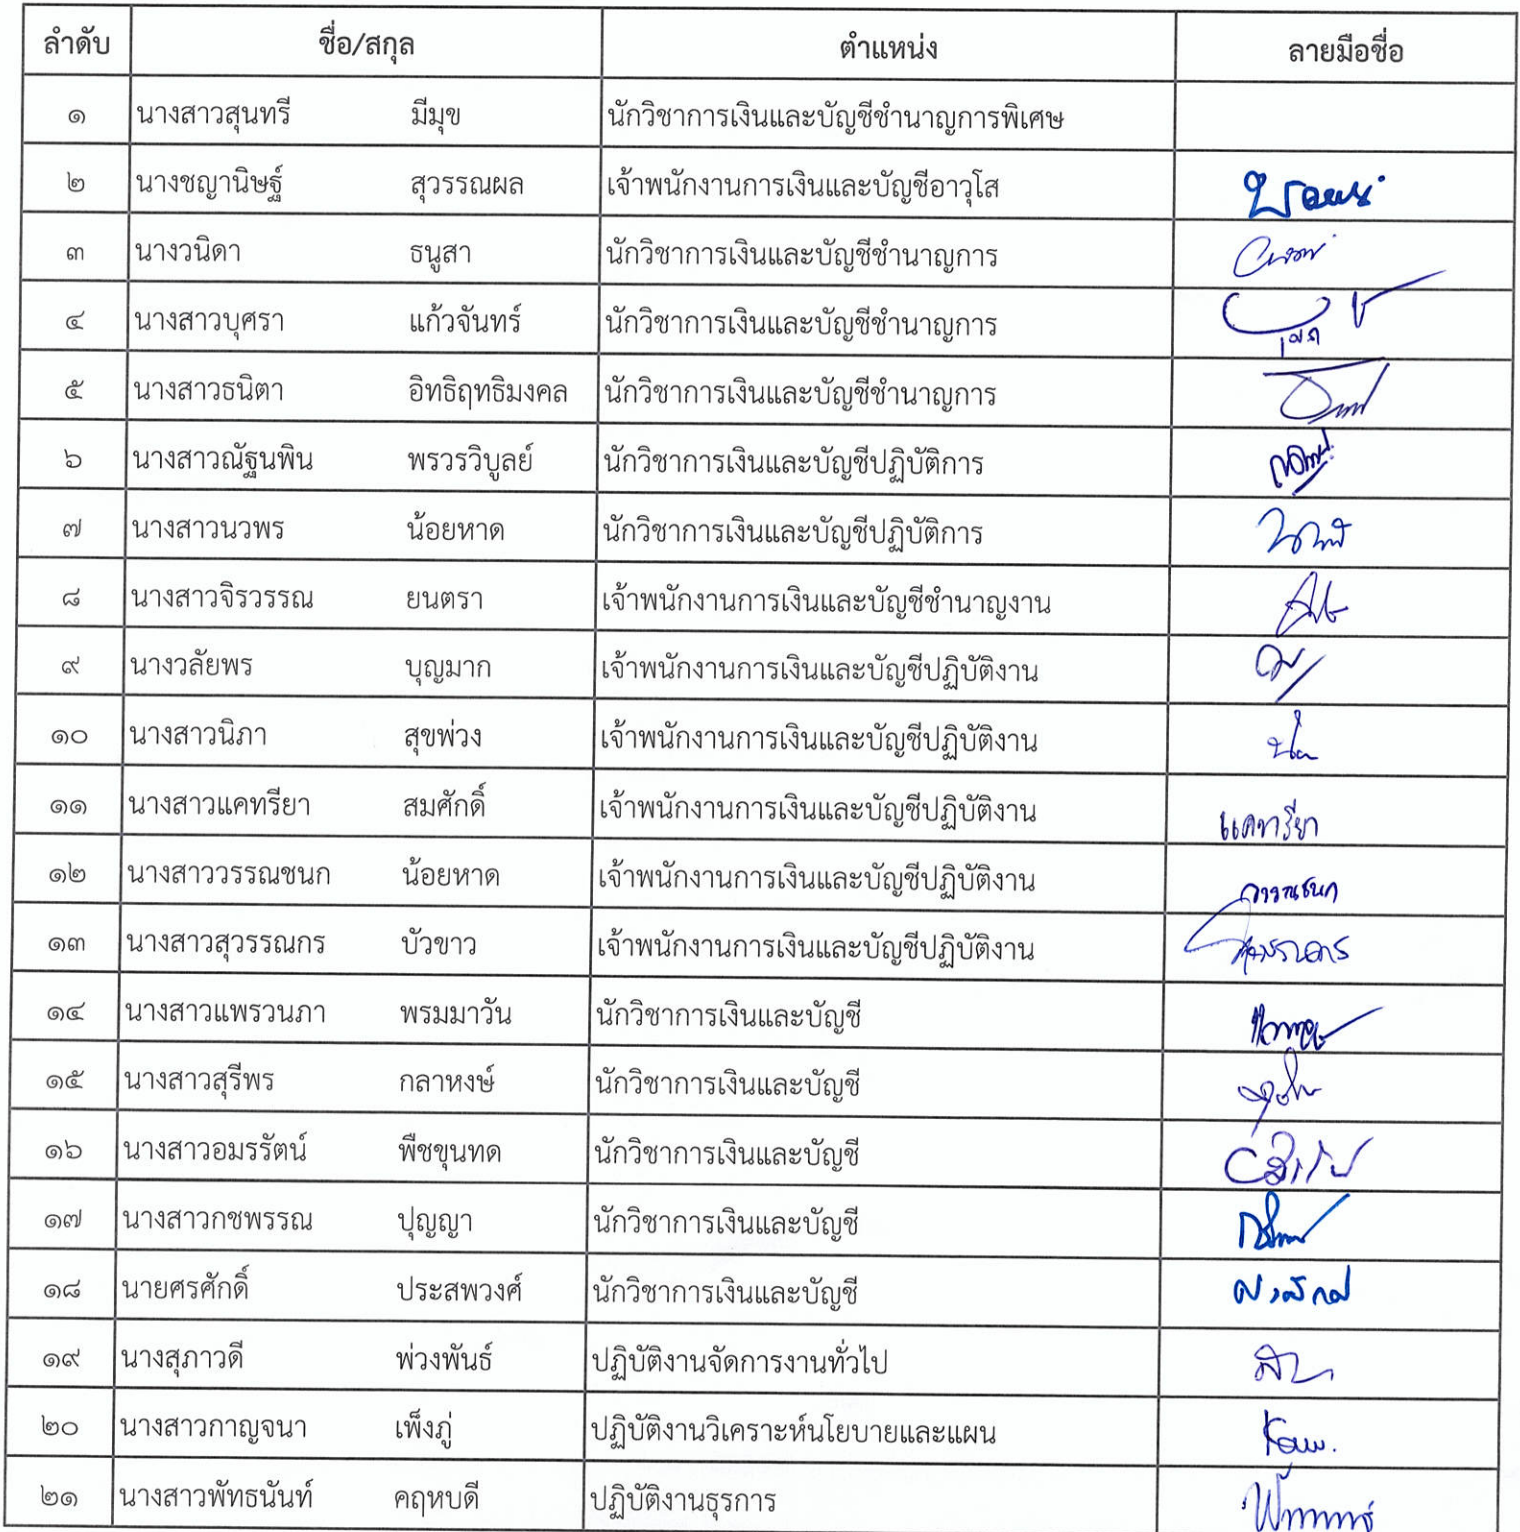 ลำดับ ชื่อ/สกุล ตำแหน่ง ลายมือชื่อ
๑ นางสาวสุนทรี มีมุข นักวิชาการเงินและบัญชีชำนาญการพิเศษ
๒ นางชญานิษฐ์ สุวรรณผล เจ้าพนักงานการเงินและบัญชีอาวุโส
๓ นางวนิดา ธนูสา นักวิชาการเงินและบัญชีชำนาญการ
๔ นางสาวบุศรา แก้วจันทร์ นักวิชาการเงินและบัญชีชำนาญการ
๕ นางสาวธนิตา อิทธิฤทธิมงคล นักวิชาการเงินและบัญชีชำนาญการ
๖ นางสาวณัฐนพิน พรวรวิบูลย์ นักวิชาการเงินและบัญชีปฏิบัติการ
๗ นางสาวนวพร น้อยหาด นักวิชาการเงินและบัญชีปฏิบัติการ
๘ นางสาวจิรวรรณ ยนตรา เจ้าพนักงานการเงินและบัญชีชำนาญงาน
๙ นางวลัยพร บุญมาก เจ้าพนักงานการเงินและบัญชีปฏิบัติงาน
๑๐ นางสาวนิภา สุขพ่วง เจ้าพนักงานการเงินและบัญชีปฏิบัติงาน
๑๑ นางสาวแคทรียา สมศักดิ์ เจ้าพนักงานการเงินและบัญชีปฏิบัติงาน แคทรียา
๑๒ นางสาววรรณชนก น้อยหาด เจ้าพนักงานการเงินและบัญชีปฏิบัติงาน วรรณชนก
๑๓ นางสาวสุวรรณกร บัวขาว เจ้าพนักงานการเงินและบัญชีปฏิบัติงาน สุวรรณกร
๑๔ นางสาวแพรวนภา พรมมาวัน นักวิชาการเงินและบัญชี
๑๕ นางสาวสุรีพร กลาหงษ์ นักวิชาการเงินและบัญชี
๑๖ นางสาวอมรรัตน์ พืชขุนทด นักวิชาการเงินและบัญชี
๑๗ นางสาวกชพรรณ ปุญญา นักวิชาการเงินและบัญชี
๑๘ นายศรศักดิ์ ประสพวงศ์ นักวิชาการเงินและบัญชี
๑๙ นางสุภาวดี พ่วงพันธ์ ปฏิบัติงานจัดการงานทั่วไป
๒๐ นางสาวกาญจนา เพ็งภู่ ปฏิบัติงานวิเคราะห์นโยบายและแผน
๒๑ นางสาวพัทธนันท์ คฤหบดี ปฏิบัติงานธุรการ